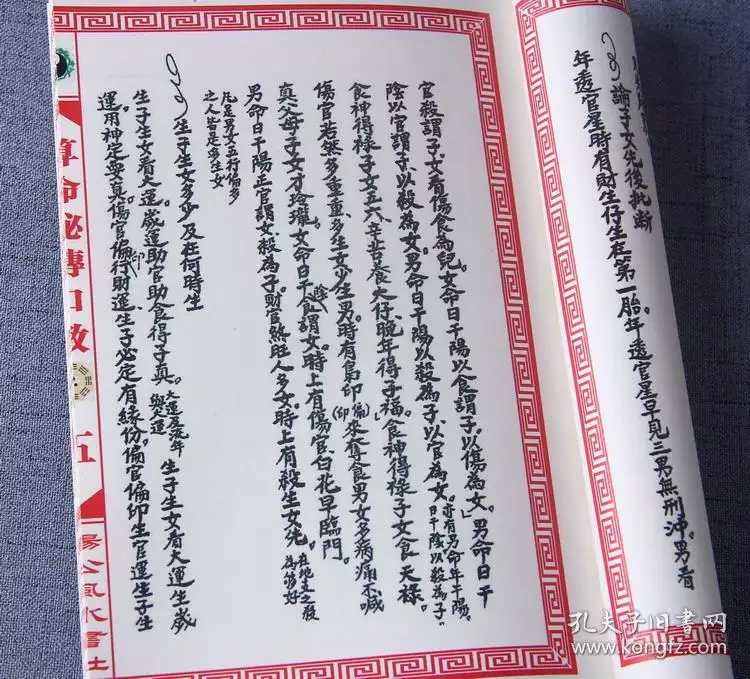 論子女先後批断
年透官星時有財生仔生在第一胎。年透官星早見三男無刑沖。男看
官殺謂子女看傷食為兒。女命日干陽以食謂子以傷為女。男命日干
陰以官謂子以殺為女。男命日干陽以殺為子以官為女。亦有男命年干陽。日干陰以殺為子。
食神得禄子女五六、辛苦養大仔晚年得子福。食神得禄子女食天禄
傷官若然多重重、多生女少生男。時有梟印(偏印)來奪食男女多病痛不喊
真父母子女才玲瓏。女命日干陰食謂女。時上有傷官、白花早臨門。
男命日干陽正官謂女殺為子財官煞旺人多女。時上有殺生女先。在地支之殺為第好
凡是男女五行偏多之人皆定多生女
生子生女多少及在何時生
生子生女看大運。歲運助官助食得子真。大運是流年與大運 生子生女看大運生歲
運用神定要真。傷官偏印行財運生子必定有緣份。偏官偏印生官運生子生
算命秘傳口訣
五
楊公風水書社
孔夫子旧书网
www.kongfz.com